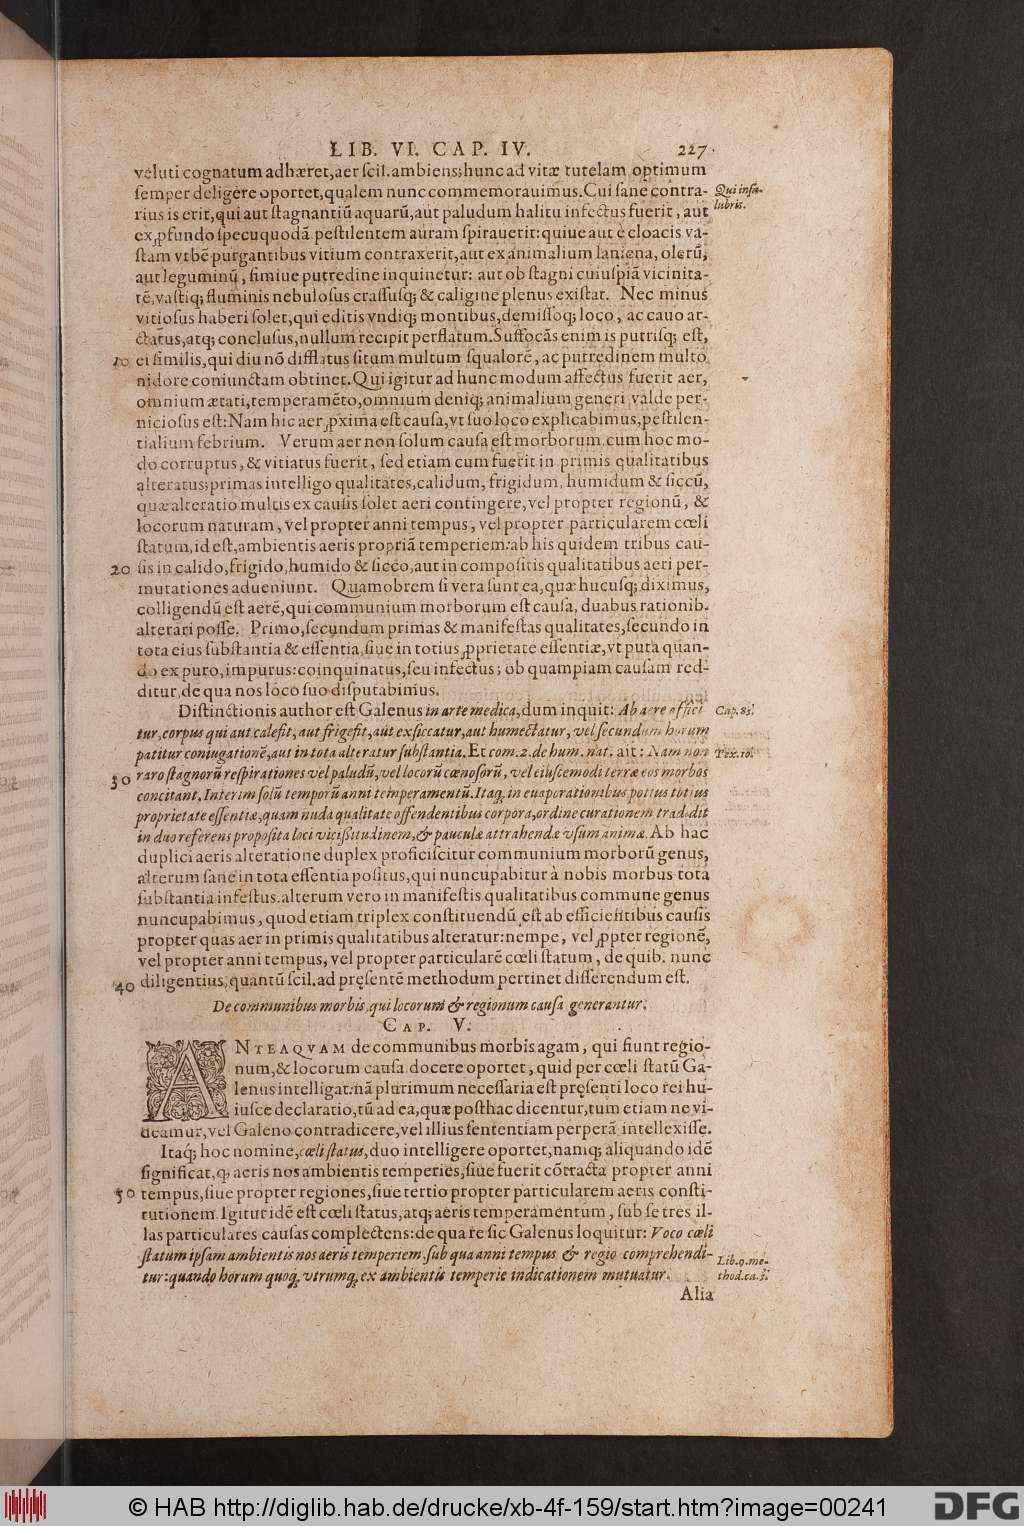 LIB. VI. CAP. IV. 227.
veluti cognatum adhæret, aer scil. ambiens; hunc ad vitæ tutelam optimum
semper deligere oportet, qualem nunc commemorauimus. Cui sane contra-
Qui insa-
rius is erit, qui aut stagnantiũ aquarũ, aut paludum halitu infectus fuerit, aut
lubris.
ex ꝓfundo specu quodã pestilentem auram spirauerit: quiue aut e cloacis va-
stam vrbẽ purgantibus vitium contraxerit, aut ex animalium laniena, olerũ,
aut leguminũ, simiue putredine inquinetur: aut ob stagni cuiuspiã vicinita-
tẽ, vastiq; fluminis nebulosus crassusq; & caligine plenus existat. Nec minus
vitiosus haberi solet, qui editis vndiq; montibus, demissoq; loco, ac cauo ar-
ctatus, atq; conclusus, nullum recipit perflatum. Suffocãs enim is putrisq; est,
10 ei similis, qui diu nõ difflatus situm multum squalorẽ, ac putredinem multo
nidore coniunctam obtinet. Qui igitur ad hunc modum affectus fuerit aer,
omnium ætati, temperamẽto, omnium deniq; animalium generi valde per-
niciosus est: Nam hic aer ꝓxima est causa, vt suo loco explicabimus, pestilen-
tialium febrium. Verum aer non solum causa est morborum, cum hoc mo-
do corruptus, & vitiatus fuerit, sed etiam cum fuerit in primis qualitatibus
alteratus; primas intelligo qualitates, calidum, frigidum, humidum & siccũ,
quæ alteratio multis ex causis solet aeri contingere, vel propter regionũ, &
locorum naturam, vel propter anni tempus, vel propter particularem cœli
statum, id est, ambientis aeris propriã temperiem: ab his quidem tribus cau-
20 sis in calido, frigido, humido & sicco, aut in compositis qualitatibus aeri per-
mutationes adueniunt. Quamobrem si vera sunt ea, quæ hucusq; diximus,
colligendũ est aerẽ, qui communium morborum est causa, duabus rationib.
alterari posse. Primo, secundum primas & manifestas qualitates, secundo in
tota eius substantia & essentia, siue in totius ꝓprietate essentiæ, vt puta quan-
do ex puro, impurus: coinquinatus, seu infectus; ob quampiam causam red-
ditur, de qua nos loco suo disputabimus.
Distinctionis author est Galenus in arte medica, dum inquit: Ab aere affici
Cap. 85.
tur, corpus qui aut calefit, aut frigefit, aut exsiccatur, aut humectatur, vel secundum horum
patitur coniugationẽ, aut in tota alteratur substantia. Et com. 2. de hum. nat. ait: Nam non
Tex. 10.
30 raro stagnorũ respirationes vel paludũ, vel locorũ cœnosorũ, vel eiuscemodi terræ eos morbos
concitant. Interim solũ temporũ anni temperamentũ. Itaq; in euaporationibus potius totius
proprietate essentiæ, quam nuda qualitate offendentibus corpora, ordine curationem tradidit
in duo referens proposita loci vicißitudinem, & pauculæ attrahendæ vsum animæ. Ab hac
duplici aeris alteratione duplex proficiscitur communium morborũ genus,
alterum sane in tota essentia positus, qui nuncupabitur à nobis morbus tota
substantia infestus. alterum vero in manifestis qualitatibus commune genus
nuncupabimus, quod etiam triplex constituendũ est ab efficientibus causis
propter quas aer in primis qualitatibus alteratur: nempe, vel ꝓpter regionẽ,
vel propter anni tempus, vel propter particularẽ cœli statum, de quib. nunc
40 diligentius, quantũ scil. ad pręsentẽ methodum pertinet disserendum est.
De communibus morbis, qui locorum & regionum causa generantur.
CAP. V.
ANTEAQVAM de communibus morbis agam, qui fiunt regio-
num, & locorum causa docere oportet, quid per cœli statũ Ga-
lenus intelligat: nã plurimum necessaria est pręsenti loco rei hu-
iusce declaratio, tũ ad ea, quæ posthac dicentur, tum etiam ne vi-
deamur, vel Galeno contradicere, vel illius sententiam perperã intellexisse.
Itaq; hoc nomine, cœli status, duo intelligere oportet, nanq; aliquando idẽ
significat, ꝙ aeris nos ambientis temperies, siue fuerit cõtracta propter anni
50 tempus, siue propter regiones, siue tertio propter particularem aeris consti-
tutionem. Igitur idẽ est cœli status, atq; aeris temperamentum, sub se tres il-
las particulares causas complectens: de qua re sic Galenus loquitur: Voco cœli
statum ipsam ambientis nos aeris temperiem, sub qua anni tempus & regio comprehendi-
Lib. 9. me-
tur: quando horum quoq; vtrumq; ex ambientis temperie indicationem mutuatur.
thod. ca. 3.
Alia
© HAB http://diglib.hab.de/drucke/xb-4f-159/start.htm?image=00241
DFG